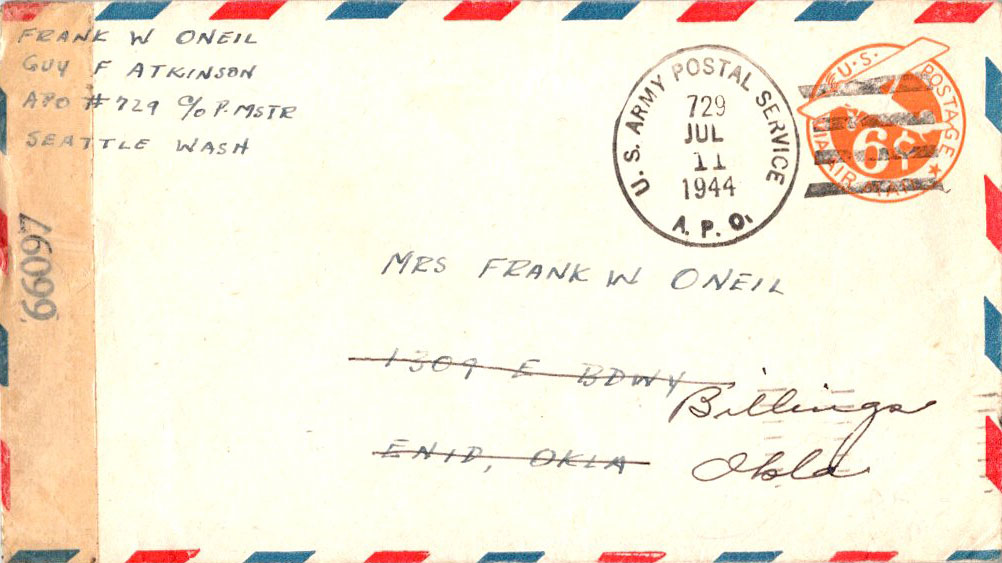 FRANK W ONEIL
GUY F ATKINSON
APO # 729 C/O P. MSTR
SEATTLE WASH
66097
U. S. ARMY POSTAL SERVICE
729
JUL
11
1944
A. P. O.
U.S. POSTAGE
6¢
VIA AIR MAIL
MRS FRANK W ONEIL
1309 E BDWY
Billings
ENID, OKLA
Okla